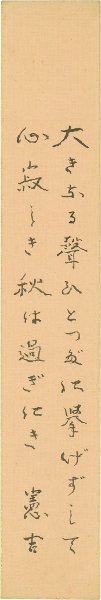 大きなる聲ひとつだに擧げずして
心寂しき秋は過ぎにき 憲吉